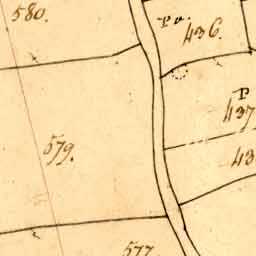 580.
P a.
436.
P
437
579.
43
577.